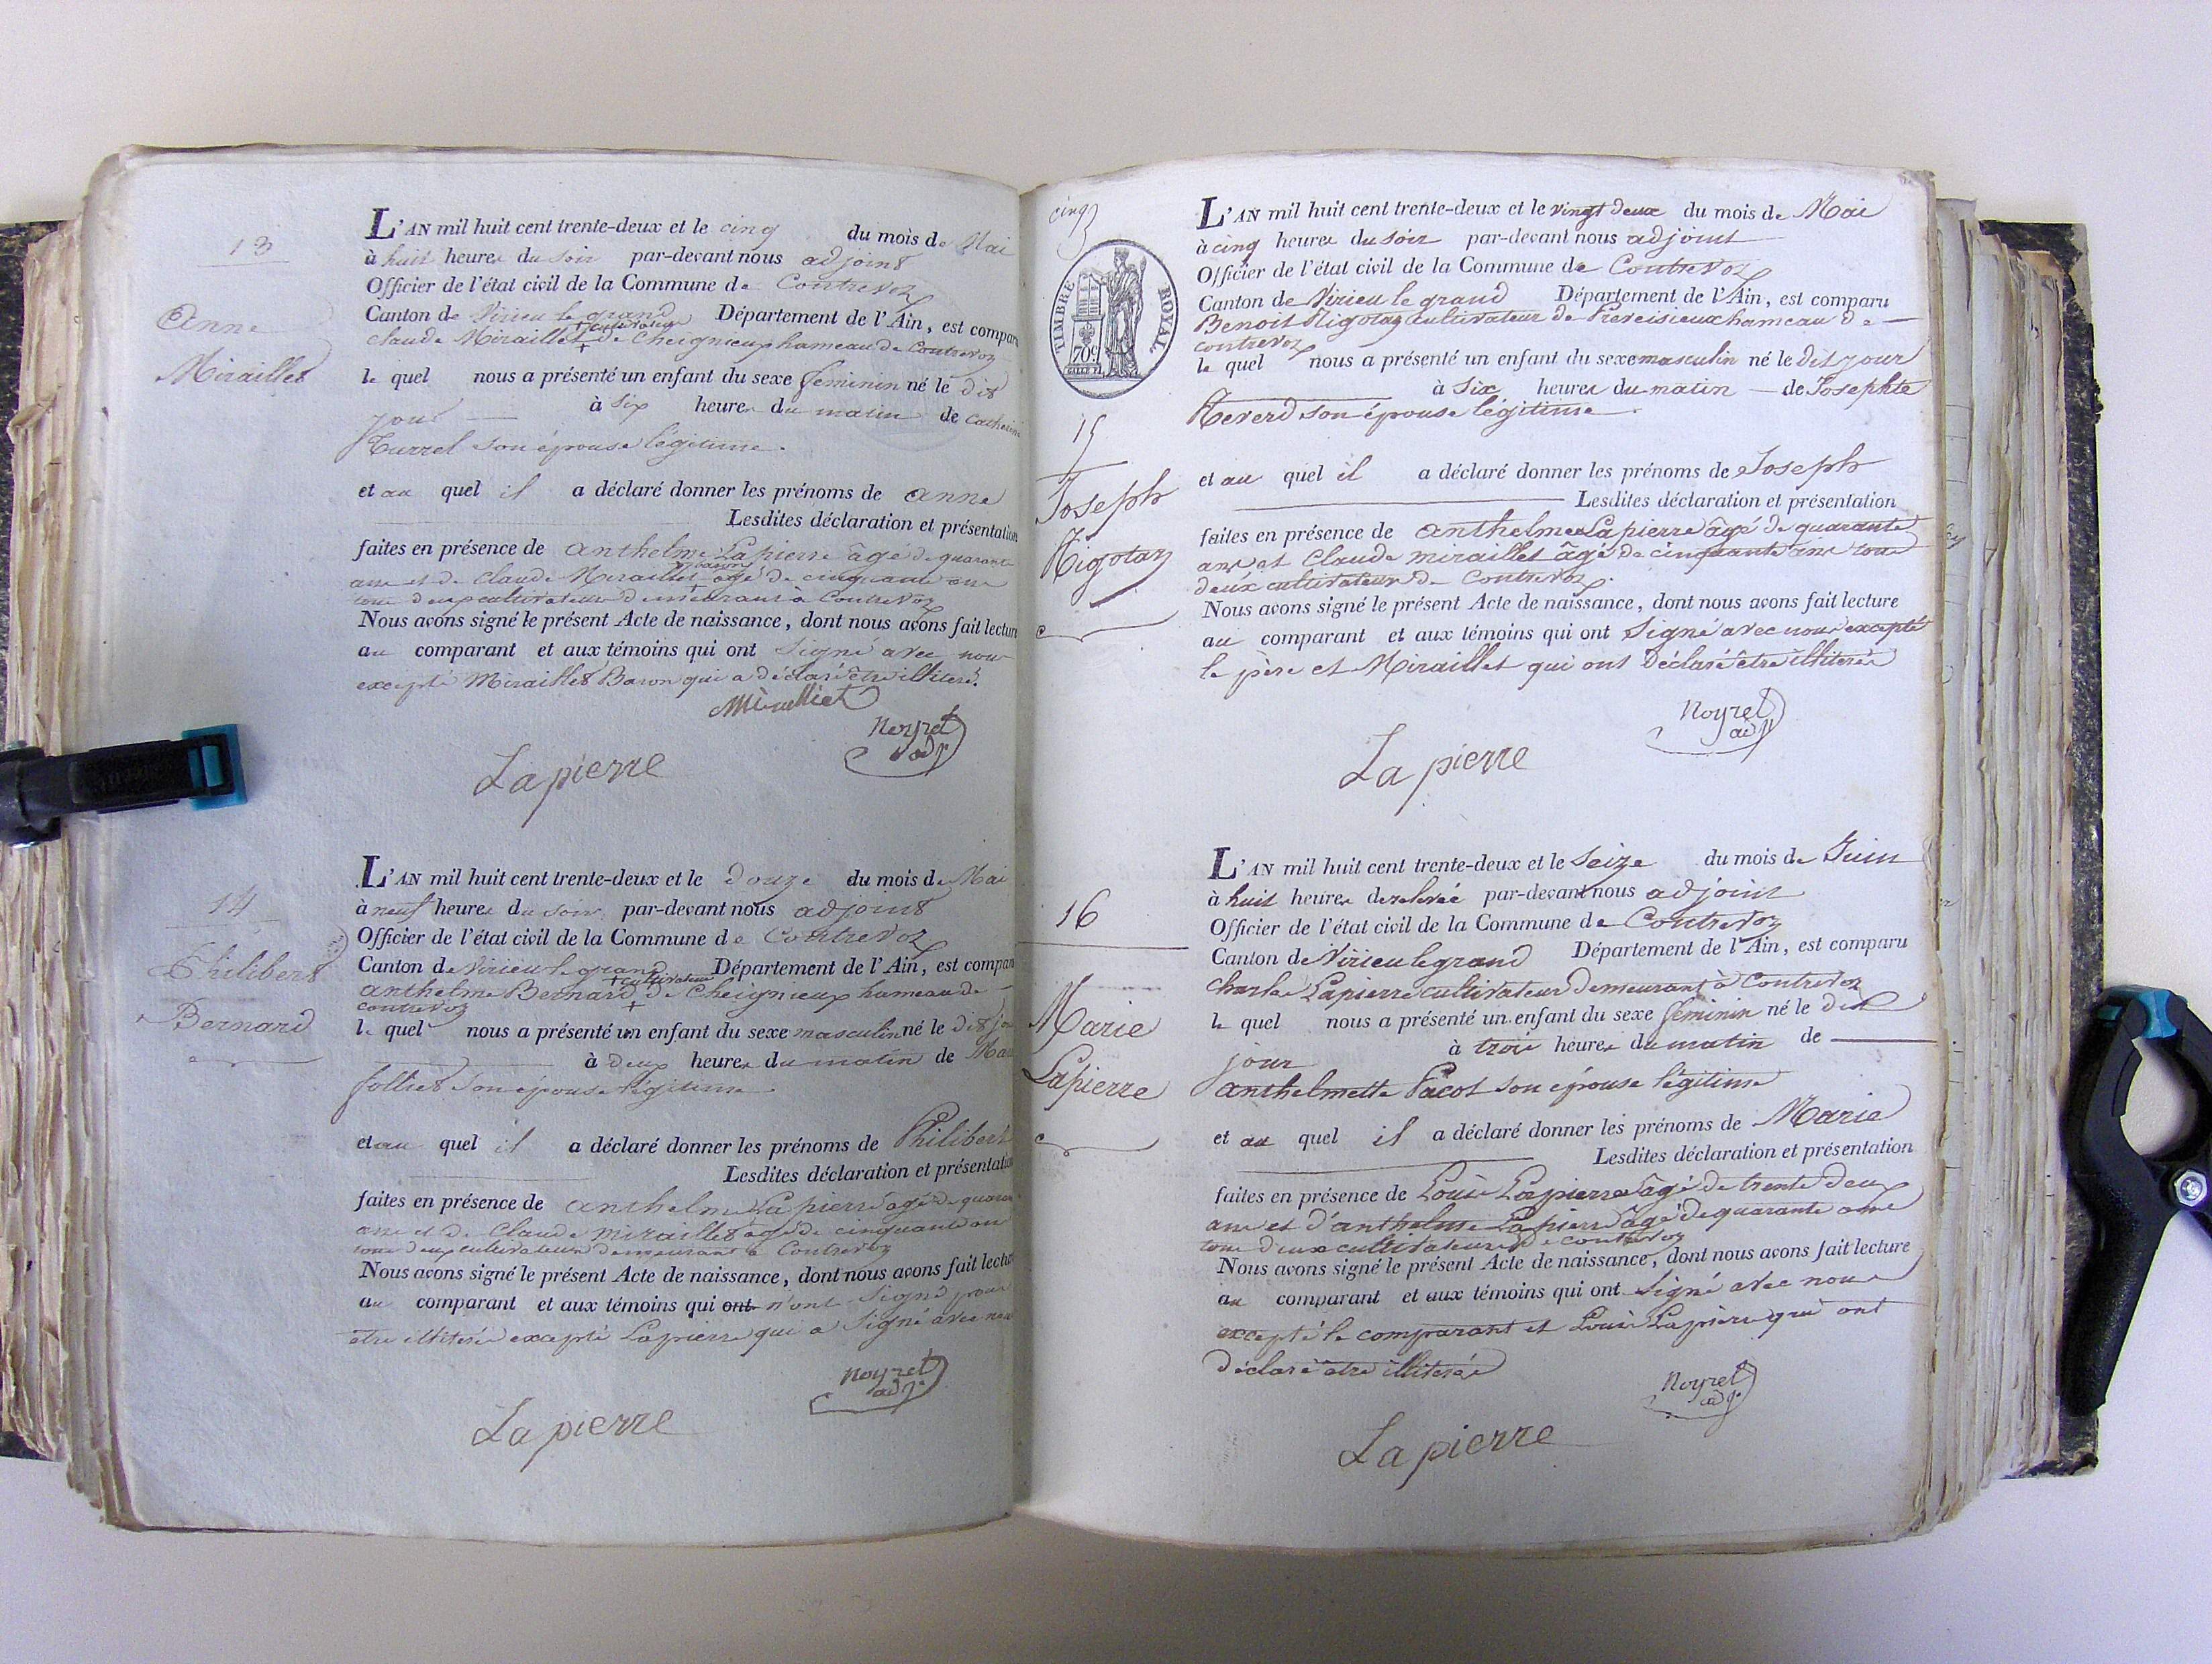 13
Anne
Miraillet
L'AN mil huit cent trente-deux et le cinq du mois de Mai
à huit heures du soir par-devant nous adjoint
Officier de l'état civil de la Commune de Contrevoz
Canton de Virieu le grand Département de l'Ain, est comparu
+ cultivateur
claude Miraillet + de Cheignieux hameau de Contrevoz
le quel nous a présenté un enfant du sexe feminin né le dit
jour à six heures du matin de Catherine
Turrel son épouse légitime.
et au quel il a déclaré donner les prénoms de anne
Lesdites déclaration et présentation
faites en présence de anthelme Lapierre âgé de quarante
ans et de Claude Miraillet baron âgé de cinquante ans
tous deux cultivateurs demeurant à Contrevoz
Nous avons signé le présent Acte de naissance, dont nous avons fait lecture
au comparant et aux témoins qui ont Signé avec nous
excepté Miraillet Baron qui a déclaré être illiteré.
Miralliet
Noyret
adjt
Lapierre
14
Philibert
Bernard
L'AN mil huit cent trente-deux et le douze du mois de Mai
à neuf heures du soir par-devant nous adjoint
Officier de l'état civil de la Commune de Contrevoz
Canton de Virieu le grand Département de l'Ain, est comparu
+ cultivateur
anthelme Bernard + de Cheignieux hameau de
contrevoz
le quel nous a présenté un enfant du sexe masculin né le dit jour
à deux heures du matin de
folliet son épouse légitime
et au quel il a déclaré donner les prénoms de Philibert
Lesdites déclaration et présentation
faites en présence de anthelme Lapierre âgé de quarante
ans et de Claude miraillet âgé de cinquante ans
tous deux cultivateurs demeurant à Contrevoz
Nous avons signé le présent Acte de naissance, dont nous avons fait lecture
au comparant et aux témoins qui ont n'ont Signé pour
etre illiteré excepté Lapierre qui a Signé avec nous
Noyret
adjt
Lapierre
cinq
TIMBRE ROYAL
70c
15
Joseph
Rigotaz
L'AN mil huit cent trente-deux et le vingt deux du mois de Mai
à cinq heures du soir par-devant nous adjoint
Officier de l'état civil de la Commune de Contrevoz
Canton de Virieu le grand Département de l'Ain, est comparu
Benoit Rigotaz cultivateur de Preveisieux hameau de
contrevoz
le quel nous a présenté un enfant du sexe masculin né le dit jour
à six heures du matin de Josephte
Reverd son épouse légitime
et au quel il a déclaré donner les prénoms de Joseph
Lesdites déclaration et présentation
faites en présence de anthelme Lapierre âgé de quarante
ans et Claude miraillet âgé de cinquante ans tous
deux cultivateurs de Contrevoz.
Nous avons signé le présent Acte de naissance, dont nous avons fait lecture
au comparant et aux témoins qui ont Signé avec nous excepté
le père et Miraillet qui ont Déclaré être illiteré
Noyret
adjt
La pierre
16
Marie
Lapierre
L'AN mil huit cent trente-deux et le Seize du mois de Juin
à huit heures de relevée par-devant nous adjoint
Officier de l'état civil de la Commune de Contrevoz
Canton de Virieu le grand Département de l'Ain, est comparu
charles Lapierre cultivateur demeurant à Contrevoz
le quel nous a présenté un enfant du sexe feminin né le dit
jour à trois heures du matin de
anthelmette Pacot son épouse légitime
et au quel il a déclaré donner les prénoms de Marie
Lesdites déclaration et présentation
faites en présence de Louis Lapierre âgé de trente deux
ans et d'anthelme Lapierre âgé de quarante ans
tous deux cultivateurs de contrevoz
Nous avons signé le présent Acte de naissance, dont nous avons fait lecture
au comparant et aux témoins qui ont Signé avec nous
excepté le comparant et Louis Lapierre qui ont
déclaré etre illiteré
Noyret
adjt
La pierre